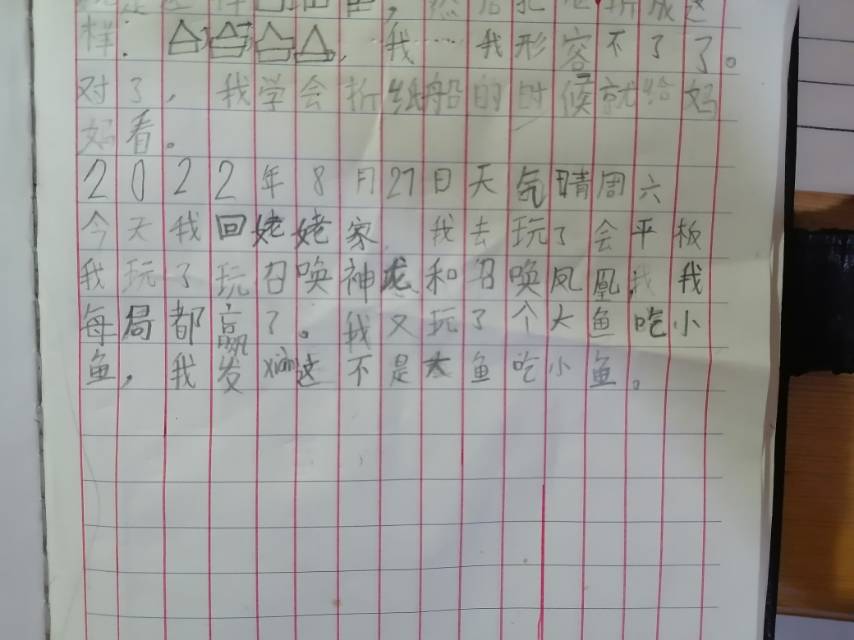 样：我……我形容不了了。
对了，我学会折纸船的时候就给妈
妈看。
2022年8月27日天气晴周六
今天我回姥姥家 我去玩了会平板
我玩了玩召唤神龙和召唤凤凰，我我
每局都赢了。我又玩了个大鱼吃小
鱼，我发xiàn这不是大鱼吃小鱼。